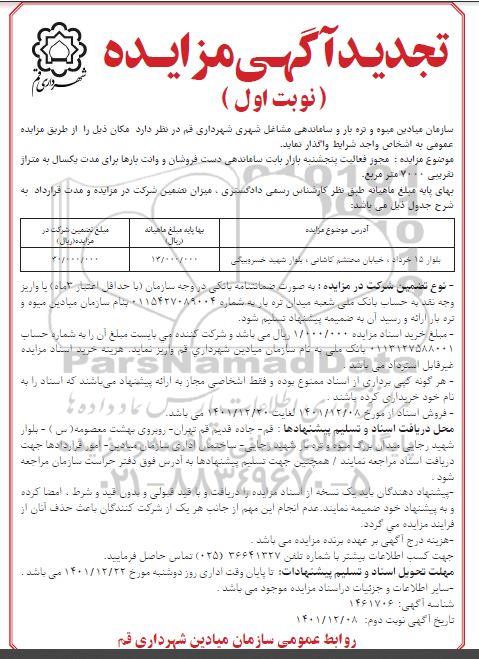 تجدید آگهی مزایده
( نوبت اول )
شهرداری قم
سازمان میادین میوه و تره بار و ساماندهی مشاغل شهری شهرداری قم در نظر دارد مکان ذیل را از طریق مزایده
عمومی به اشخاص واجد شرایط واگذار نماید.
موضوع مزایده : مجوز فعالیت پنجشنبه بازار بابت ساماندهی دست فروشان و وانت بارها برای مدت یکسال به متراژ
تقریبی ۷۰۰۰ متر مربع.
بهای پایه مبلغ ماهیانه طبق نظر کارشناس رسمی دادگستری ، میزان تضمین شرکت در مزایده و مدت قرارداد به
شرح جدول ذیل می باشد:
آدرس موضوع مزایده
بها پایه مبلغ ماهیانه (ریال)
مبلغ تضمین شرکت در مزایده(ریال)
بلوار ۱۵ خرداد ، خیابان محتشم کاشانی ، بلوار شهید خسروبیگی
۱۳/۰۰۰/۰۰۰
۳۰/۰۰۰/۰۰۰
- نوع تضمین شرکت در مزایده : به صورت ضمانتنامه بانکی در وجه سازمان (با حداقل اعتبار ۳ماه) یا واریز
وجه نقد به حساب بانک ملی شعبه میدان تره بار به شماره ۰۱۱۵۴۲۷۰۸۹۰۰۴ بنام سازمان میادین میوه و
تره بار ارائه و رسید آن به ضمیمه پیشنهاد تسلیم شود.
- مبلغ خرید اسناد مزایده ۱/۰۰۰/۰۰۰ ریال می باشد و شرکت کننده می بایست مبلغ آن را به شماره حساب
۰۱۱۳۱۲۷۵۸۸۰۰۱ بانک ملی به نام سازمان میادین شهرداری قم واریز نماید. هزینه خرید اسناد مزایده
غیرقابل استرداد می باشد .
- هر گونه کپی برداری از اسناد ممنوع بوده و فقط اشخاصی مجاز به ارائه پیشنهاد می‌باشند که اسناد را به
نام خود خریداری کرده باشند .
- فروش اسناد از مورخ ۱۴۰۱/۱۲/۰۸ لغایت ۱۴۰۱/۱۲/۲۰ می باشد.
محل دریافت اسناد و تسلیم پیشنهادها : قم- جاده قدیم قم تهران- روبروی بهشت معصومه( س ) - بلوار
شهید رجایی میدان بزرگ میوه و تره بار شهید رجایی - ساختمان اداری سازمان میادین- امور قراردادها جهت
دریافت اسناد مراجعه نمایند / همچنین جهت تسلیم پیشنهادها به آدرس فوق دفتر حراست سازمان مراجعه
شود .
-پیشنهاد دهندگان باید یک نسخه از اسناد مزایده را دریافت و با قید قبولی و بدون قید و شرط ، امضا کرده
و به پیشنهاد خود ضمیمه نمایند.عدم انجام این مهم از جانب هر یک از شرکت کنندگان باعث حذف آنان از
فرایند مزایده می گردد.
-هزینه درج آگهی بر عهده برنده مزایده می باشد .
جهت کسب اطلاعات بیشتر با شماره تلفن ۳۶۶۴۱۳۲۷ (۰۲۵) تماس حاصل فرمایید.
مهلت تحویل اسناد و تسلیم پیشنهادات: تا پایان وقت اداری روز دوشنبه مورخ ۱۴۰۱/۱۲/۲۲ می باشد .
-سایر اطلاعات و جزئیات دراسناد مزایده موجود می باشد .
شناسه آگهی: ۱۴۶۱۷۰۶
تاریخ آگهی نوبت دوم: ۱۴۰۱/۱۲/۰۸
روابط عمومی سازمان میادین شهرداری قم
ParsNamadData
۰۲۱-۸۸۳۴۹۶۷۰-۵